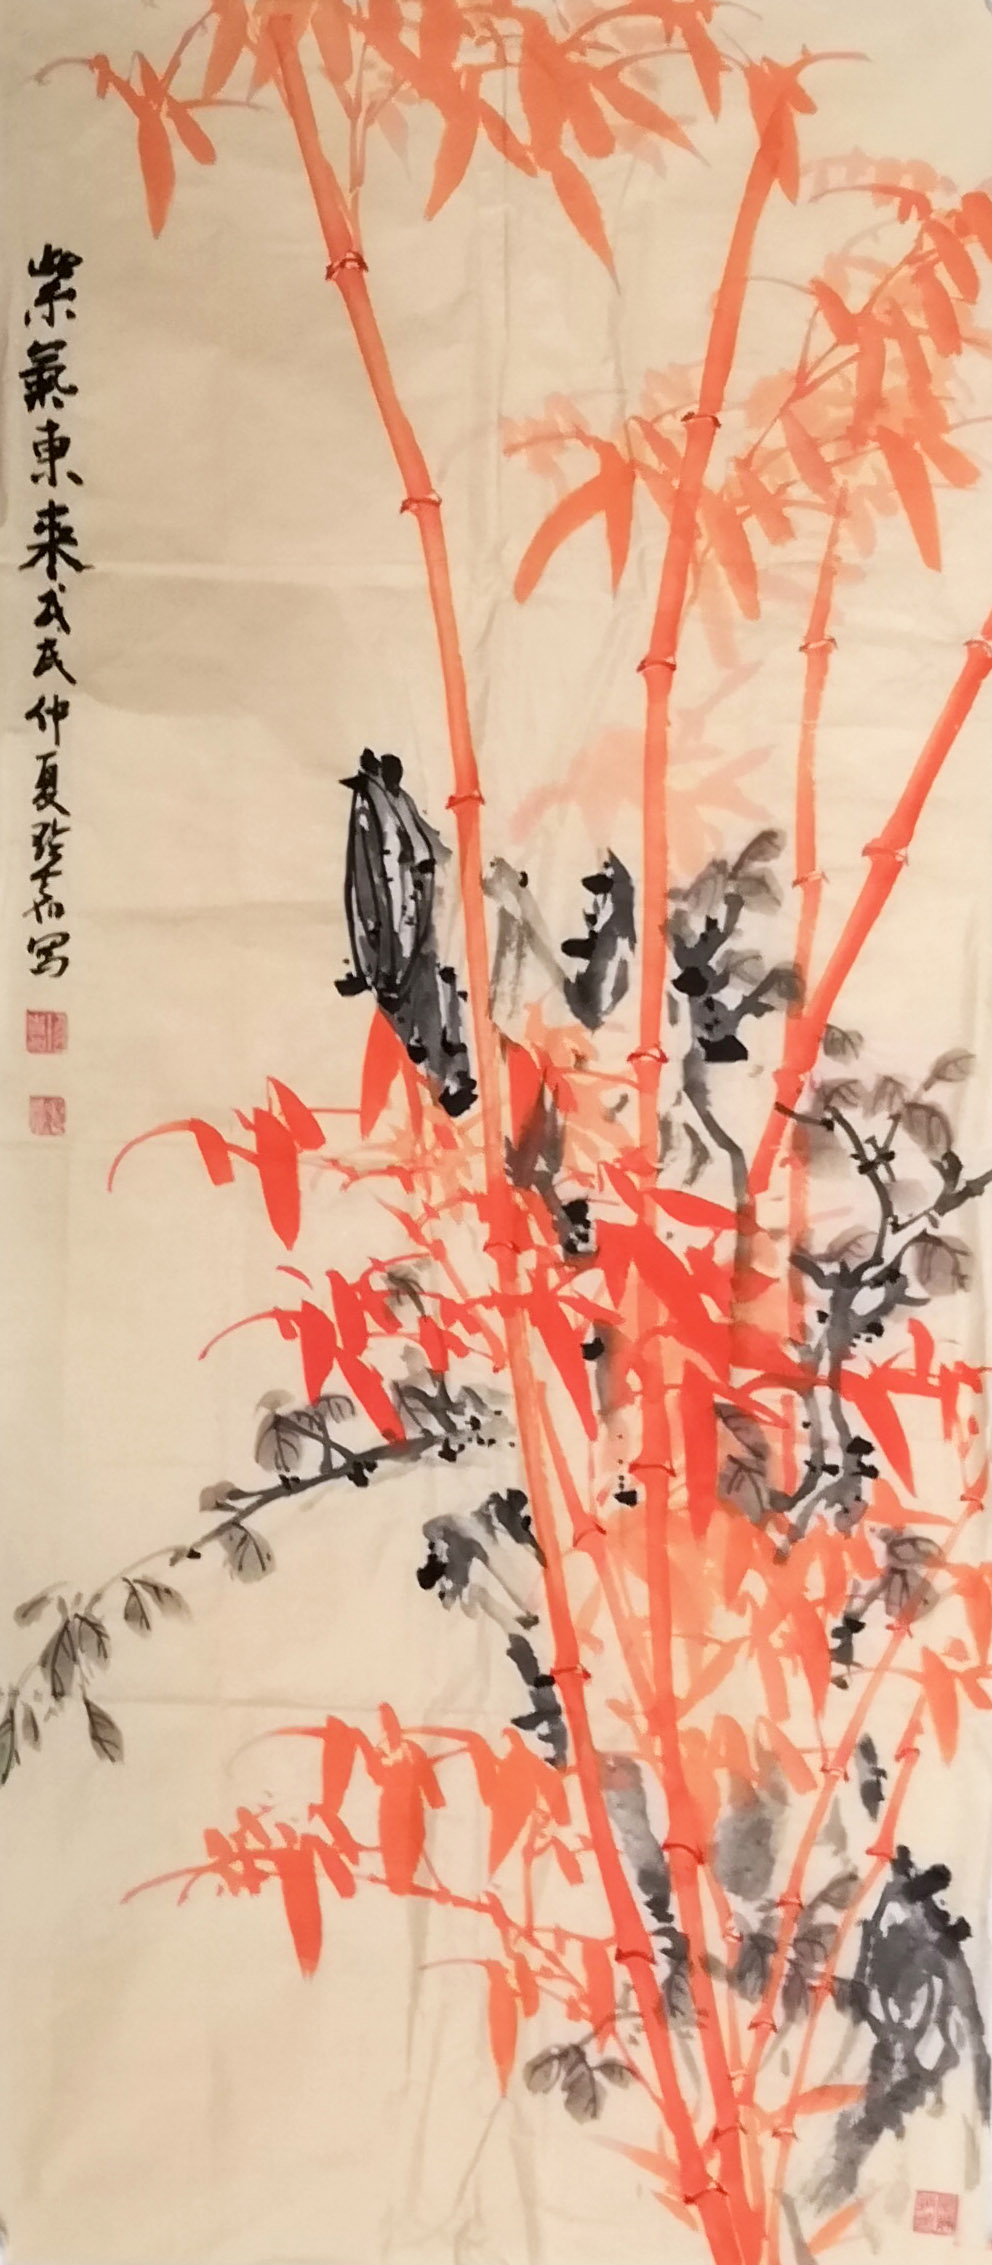 紫氣東来戊戌仲夏
寫